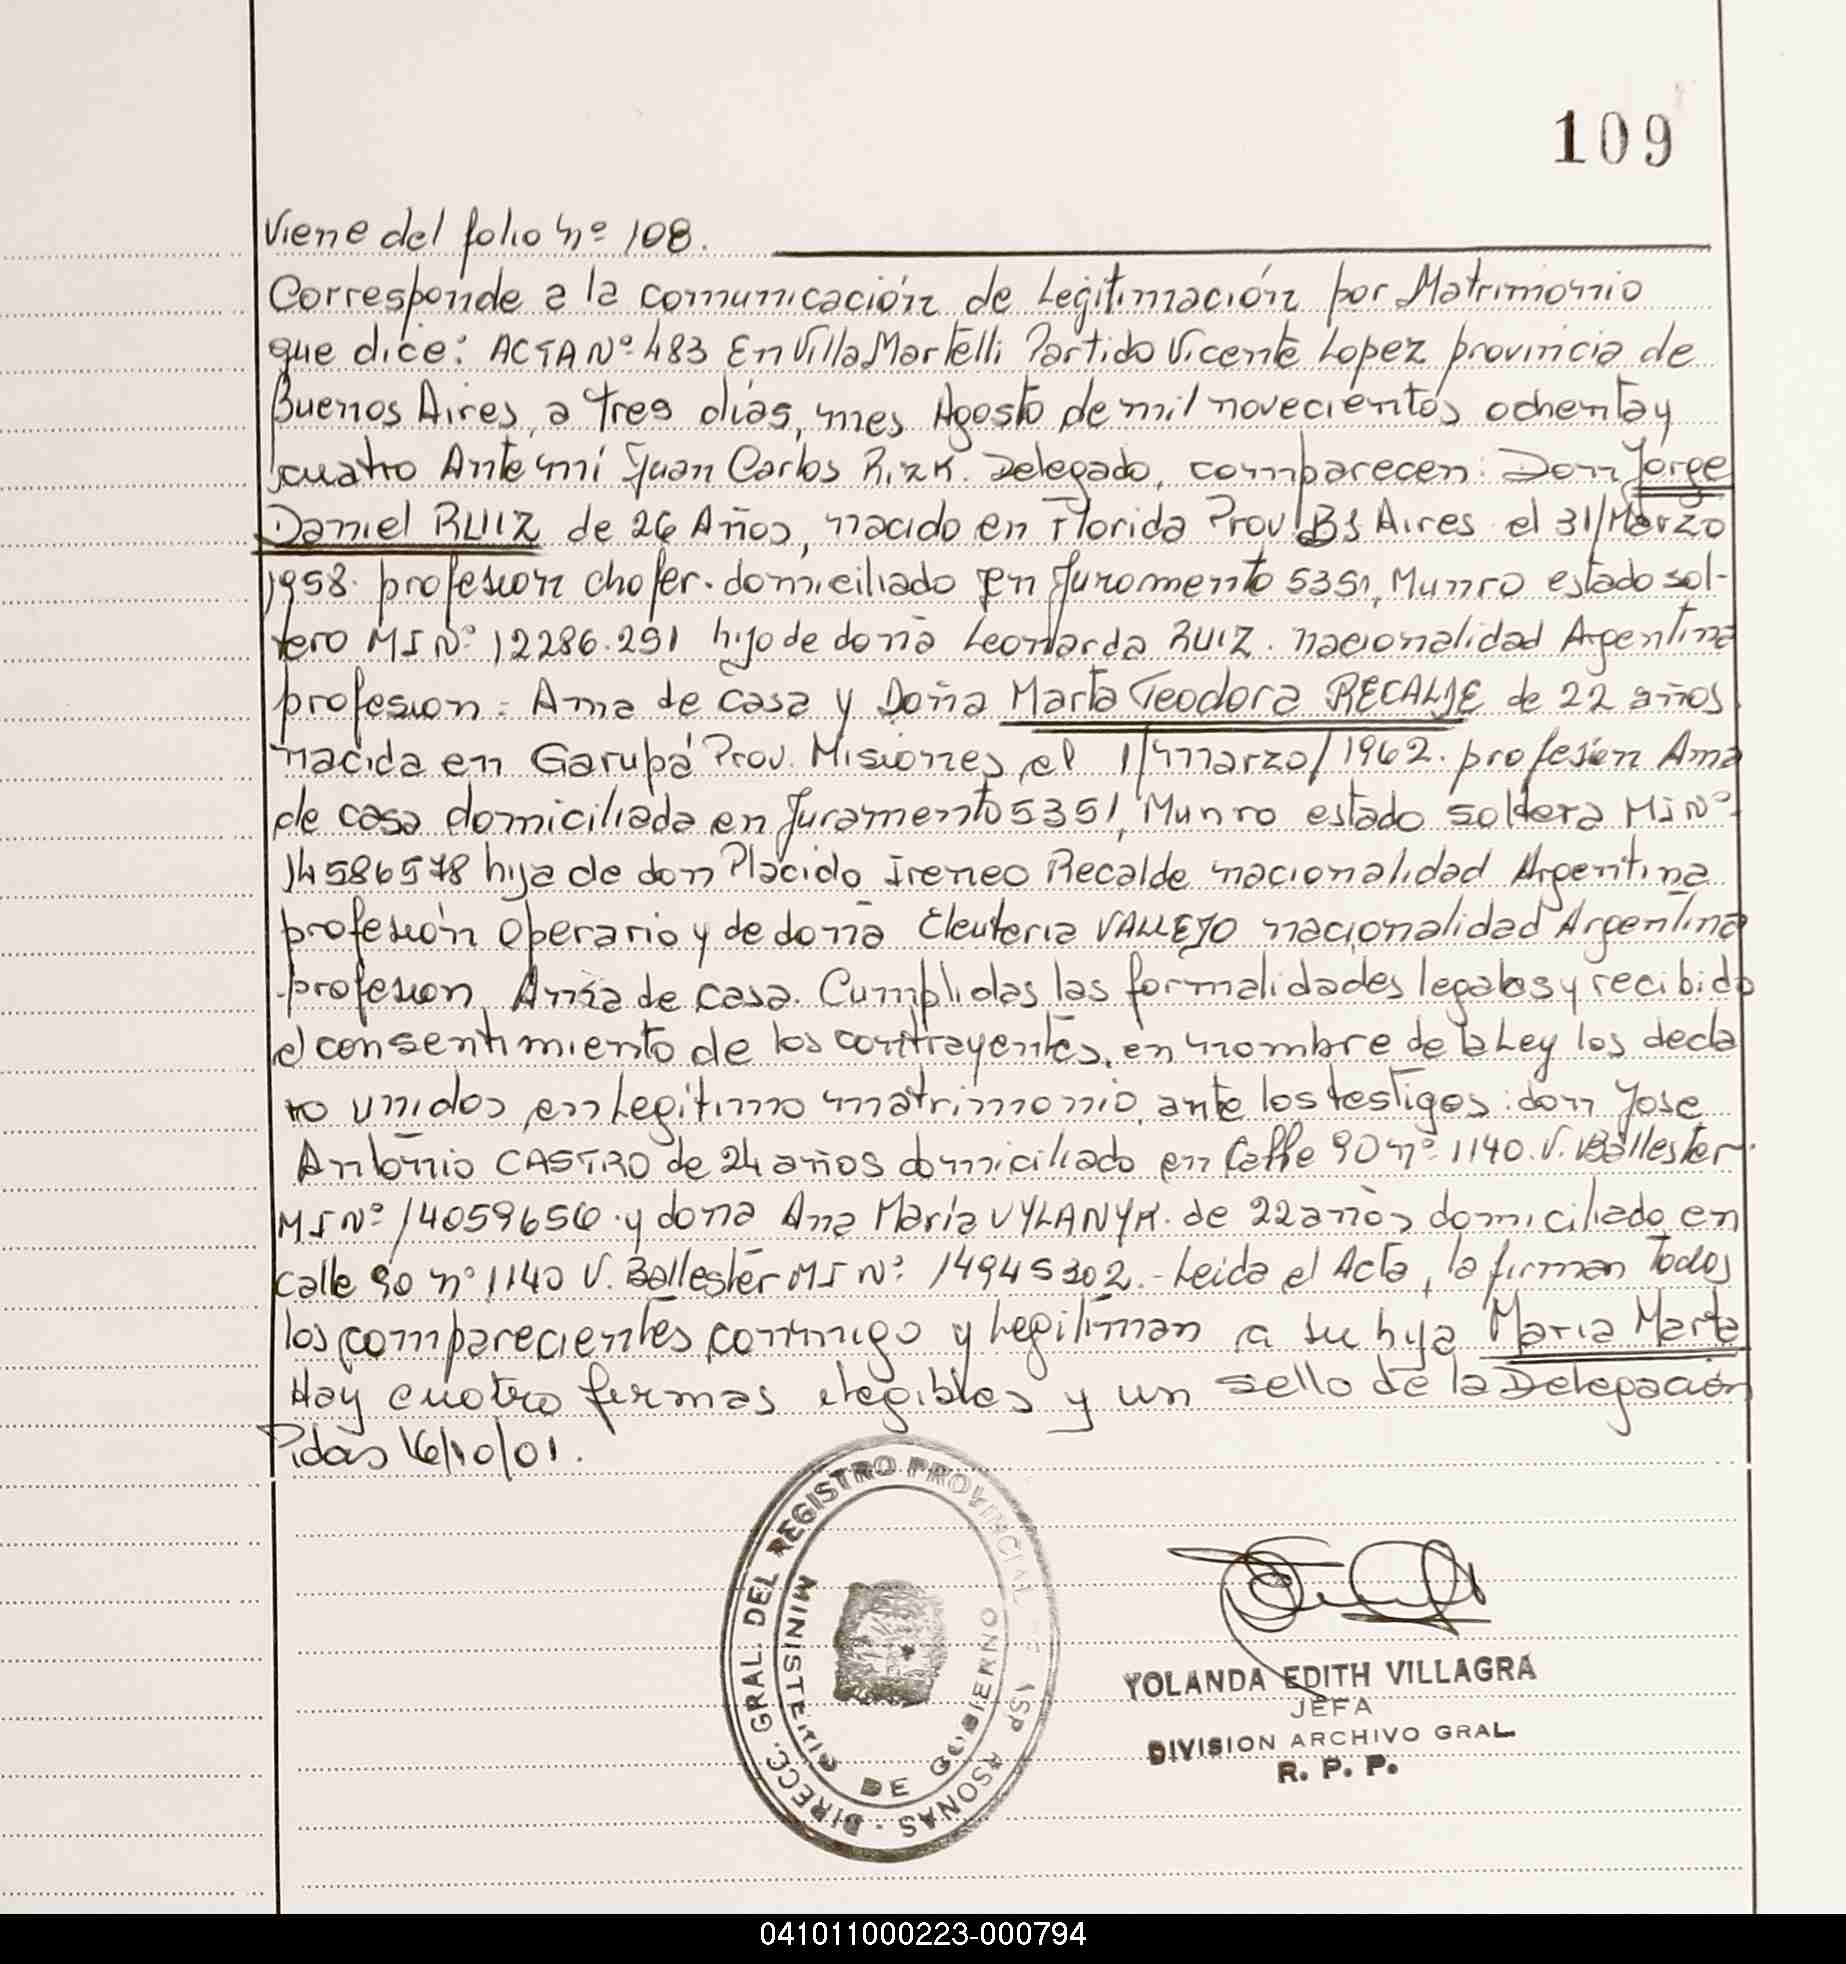 109
Viene del folio nº 108.
Corresponde a la comunicación de Legitimación por Matrimonio
que dice: ACTA Nº 483 En Villa Martelli Partido Vicente Lopez provincia de
Buenos Aires, a tres días, mes Agosto de mil novecientos ochenta y
cuatro Ante mí Juan Carlos Rizk. Delegado, comparecen: Don Jorge
Daniel RUIZ de 26 Años, nacido en Florida Prov Bs Aires el 31/Marzo
1958. profesion chofer. domiciliado en Juramento 5351, Munro estado sol-
tero MI Nº 12286.291 hijo de doña Leonarda RUIZ. nacionalidad Argentina
profesion: Ama de casa y Doña Marta Teodora RECALDE de 22 años
nacida en Garupá Prov. Misiones, el 1/marzo/1962. profesión Ama
de casa domiciliada en Juramento 5351, Munro estado soltera MI Nº
14586578 hija de don Placido Ireneo Recalde nacionalidad Argentina
profesión Operario y de doña Eleuteria VALLEJO nacionalidad Argentina
profesion Ama de casa. Cumplidas las formalidades legales y recibido
el consentimiento de los contrayentes, en nombre de la Ley los decla
ro unidos en Legitimo matrimonio, ante los testigos: don Jose
Antonio CASTRO de 24 años domiciliado en Calle 90 nº 1140. V. Ballester.
MI Nº 14059656. y doña Ana María VYLANYK. de 22 años domiciliado en
Calle 90 nº 1140 V. Ballester MI Nº 14945302.- Leida el Acta, la firman Todos
los comparecientes conmigo y Legitiman a su hija Maria Marta
Hay cuatro firmas ilegibles y un sello de la Delegación
Pdas 16/10/01.
DIRECC. GRAL. DEL REGISTRO PROVINCIAL DE LAS PERSONAS
MINISTERIO DE GOBIERNO
YOLANDA EDITH VILLAGRA
JEFA
DIVISION ARCHIVO GRAL.
R. P. P.
041011000223-000794